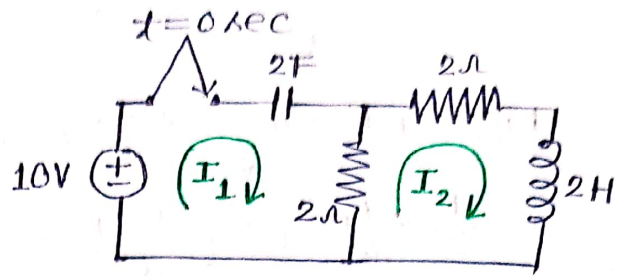 t=0 sec
2F
2Ω
10V
I1
2Ω
I2
2H